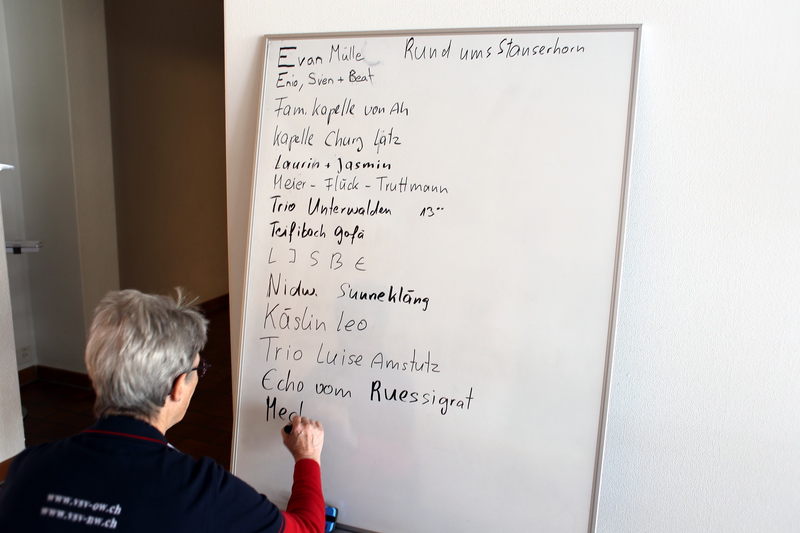 Evan Müller Rund ums Stanserhorn
Enio, Sven + Beat
Fam. kapelle von Ah
kapelle Churz Lätz
Laurin + Jasmin
Meier - Flück - Truttmann
Trio Unterwalden 13⁰⁰
Teifibach Gofä
L J S B E
Nidw. Sunneklang
Käslin Leo
Trio Luise Amstutz
Echo vom Ruessigrat
Med
www.vsv-ow.ch
www.vsv-nw.ch